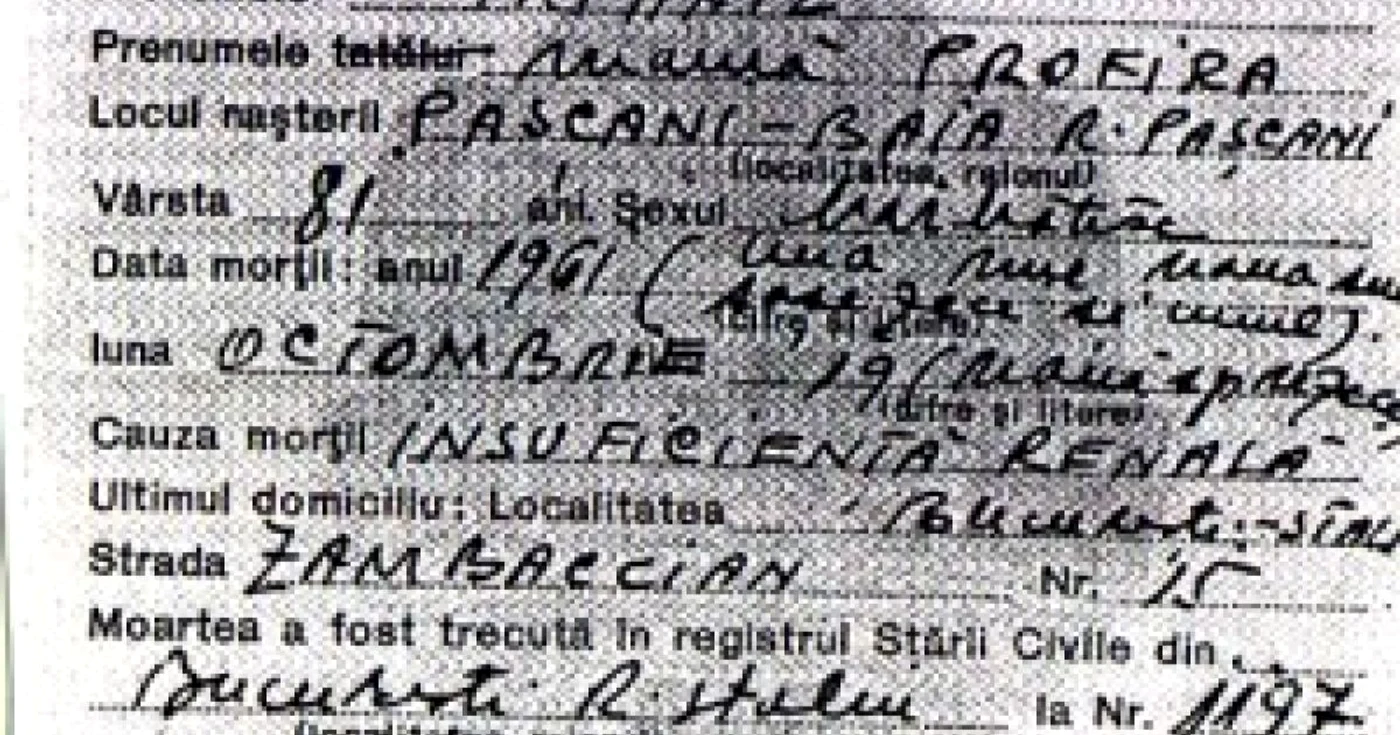 Prenumele tatălui mama PROFIRA
Locul nașterii PAȘCANI-BAIA R. PAȘCANI
(localitatea, raionul)
Vârsta 81 ani. Sexul bărbătesc
Data morții: anul 1961 (una mie nouă sute
șasezeci și unul).
(cifre și litere)
luna OCTOMBRIE 19 (nouăsprezece
(cifre și litere)
Cauza morții INSUFICIENȚĂ RENALĂ
Ultimul domiciliu: Localitatea București-STALIN
Strada ZAMBACCIAN Nr. 15
Moartea a fost trecută în registrul Stării Civile din
București R. Stalin la Nr. 1197